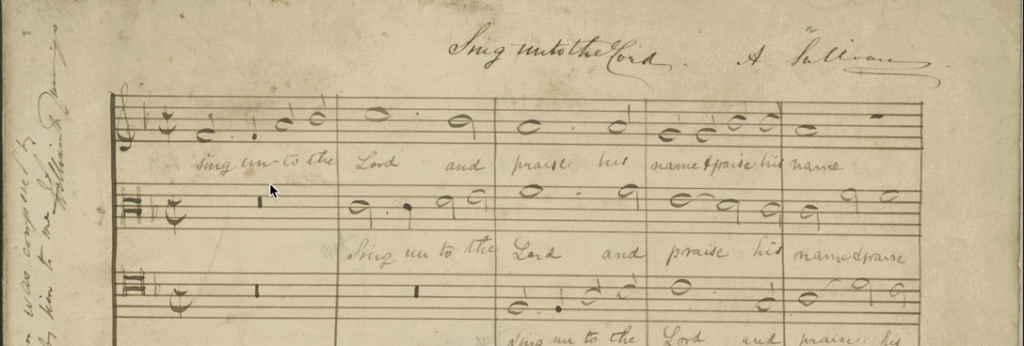 Sing unto the Lord. A. Sullivan.
Sing un-to the Lord and praise his name & praise his name
Sing un to the Lord and praise his name & praise
Sing un to the Lord and praise his
was composed by
him to me